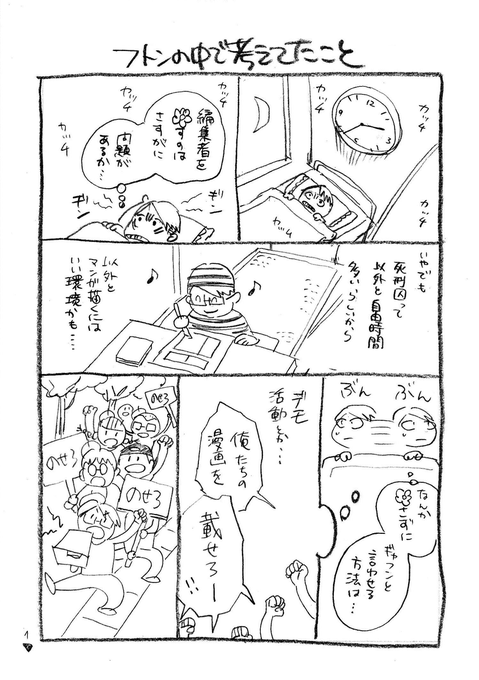 フトンの中で考えてたこと
カッチ
カッチ
カッチ
カッチ
12
3
6
9
カッチ
カッチ
カッチ
編集者を
すのは
さすがに
問題が
あるか…
ギン
ギン
いやでも
死刑囚って
以外と自由時間
多いらしいから
以外と
マンガ描くには
いい環境かも…
ぶん
ぶん
なんか
さずに
ギャフンと
言わせる
方法は…
デモ
活動とか…
俺たちの
漫画を
載せろー
のせろ
のせろ
のせろ
1